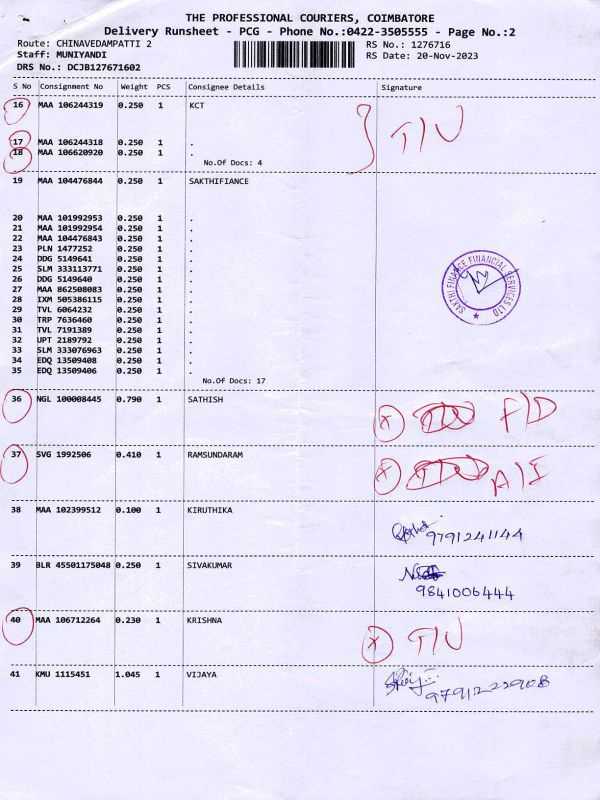 THE PROFESSIONAL COURIERS, COIMBATORE
Delivery Runsheet - PCG - Phone No.:0422-3505555 - Page No.:2
Route: CHINAVEDAMPATTI 2 RS No.: 1276716
Staff: MUNIYANDI RS Date: 20-Nov-2023
DRS No.: DCJB127671602
S No Consignment No Weight PCS Consignee Details Signature
16 MAA 106244319 0.250 1 KCT
T/U
17 MAA 106244318 0.250 1 .
18 MAA 106620920 0.250 1 .
No.Of Docs: 4
19 MAA 104476844 0.250 1 SAKTHIFIANCE
20 MAA 101992953 0.250 1 .
21 MAA 101992954 0.250 1 .
22 MAA 104476843 0.250 1 .
23 PLN 1477252 0.250 1 .
24 DDG 5149641 0.250 1 .
25 SLM 333113771 0.250 1 .
26 DDG 5149640 0.250 1 .
27 MAA 862508083 0.250 1 .
28 IXM 505386115 0.250 1 .
29 TVL 6064232 0.250 1 .
30 TRP 7636460 0.250 1 .
31 TVL 7191389 0.250 1 .
32 UPT 2189792 0.250 1 .
33 SLM 333076963 0.250 1 .
34 EDQ 13509408 0.250 1 .
35 EDQ 13509406 0.250 1 .
SAKTHI FINANCE FINANCIAL SERVICES LTD
No.Of Docs: 17
36 NGL 100008445 0.790 1 SATHISH
X F/D
37 SVG 1992506 0.410 1 RAMSUNDARAM
X A/I
38 MAA 102399512 0.100 1 KIRUTHIKA
9791241144
39 BLR 45501175048 0.250 1 SIVAKUMAR
9841006444
40 MAA 106712264 0.230 1 KRISHNA
X T/U
41 KMU 1115451 1.045 1 VIJAYA